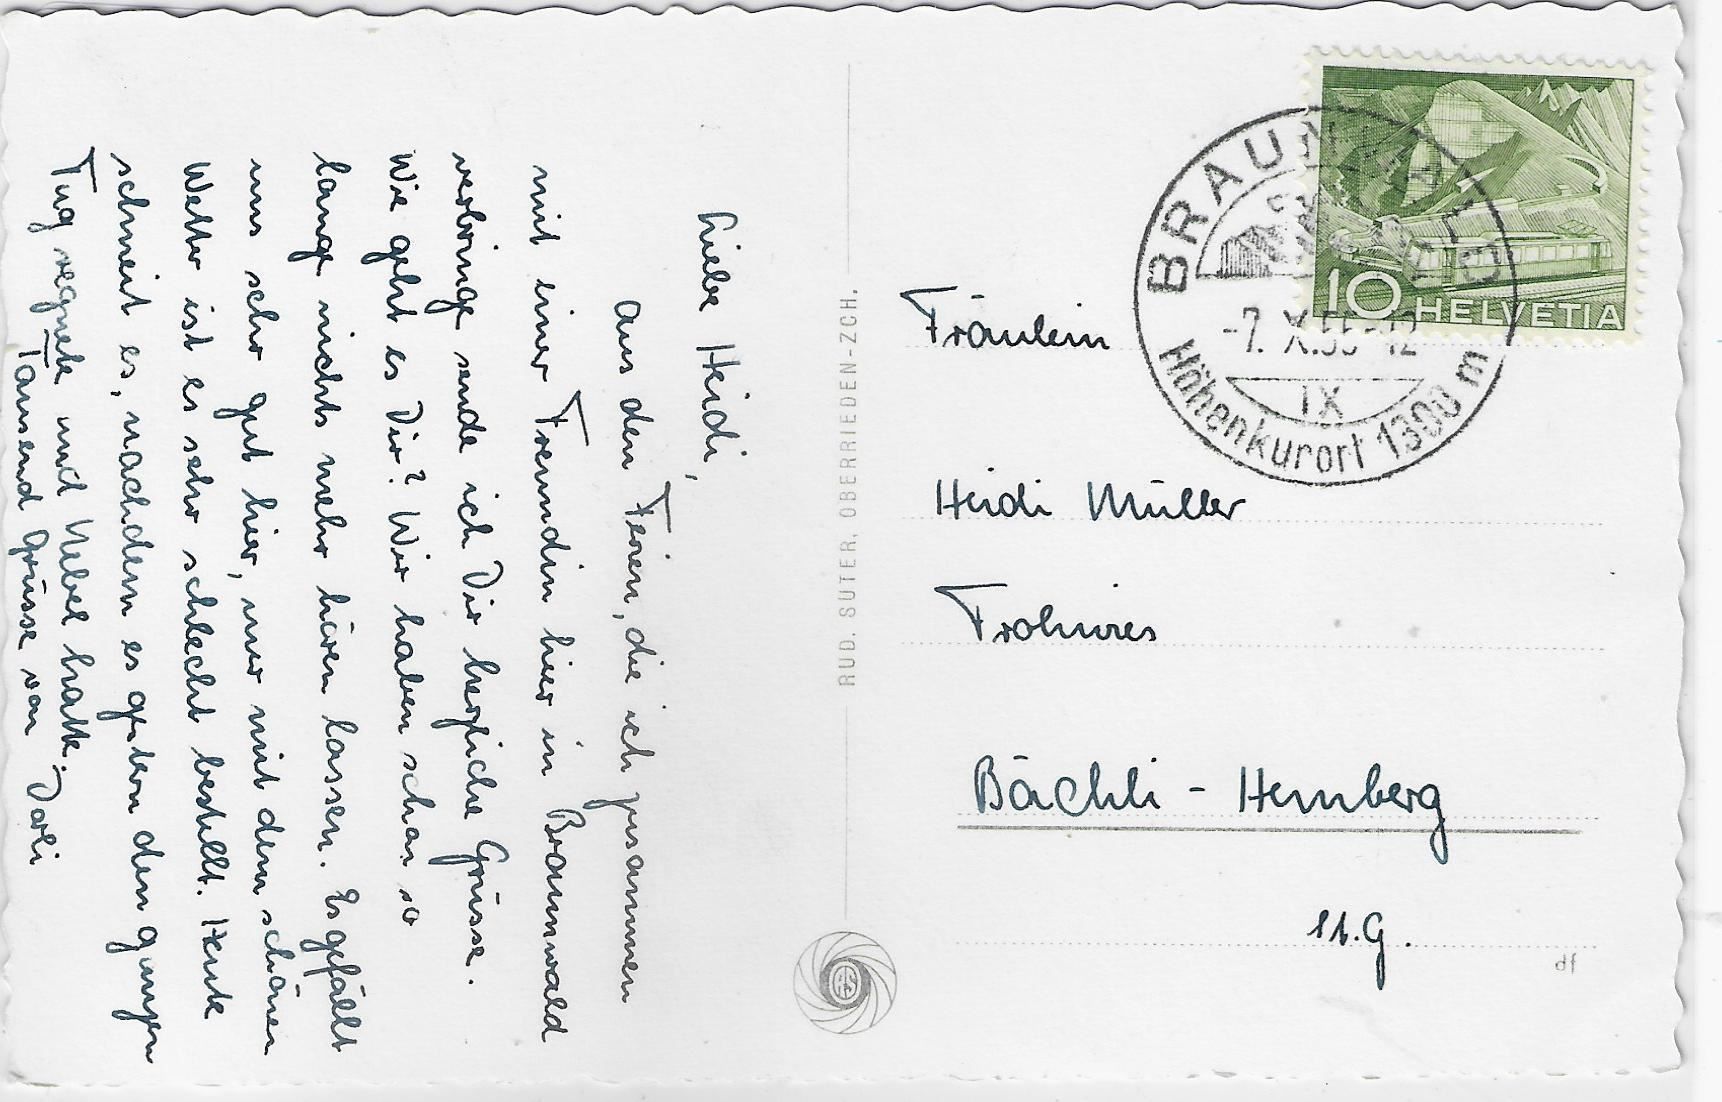 Liebe Heidi,
Aus den Ferien, die ich zusammen
mit einer Freundin hier in Braunwald
verbringe sende ich Dir herzliche Grüsse.
Wie geht es Dir? Wir haben schon so
lange nichts mehr hören lassen. Es gefällt
uns sehr gut hier, nur mit dem schönen
Wetter ist es sehr schlecht bestellt. Heute
schneit es, nachdem es gestern den ganzen
Tag regnete und Nebel hatte.
Tausend Grüsse von
RUD. SUTER, OBERRIEDEN-ZCH.
BRAUNWALD
-7. X.55-12
IX
Höhenkurort 1300 m
10 HELVETIA
Fräulein
Heidi Müller
Bächli - Hemberg
St. G.